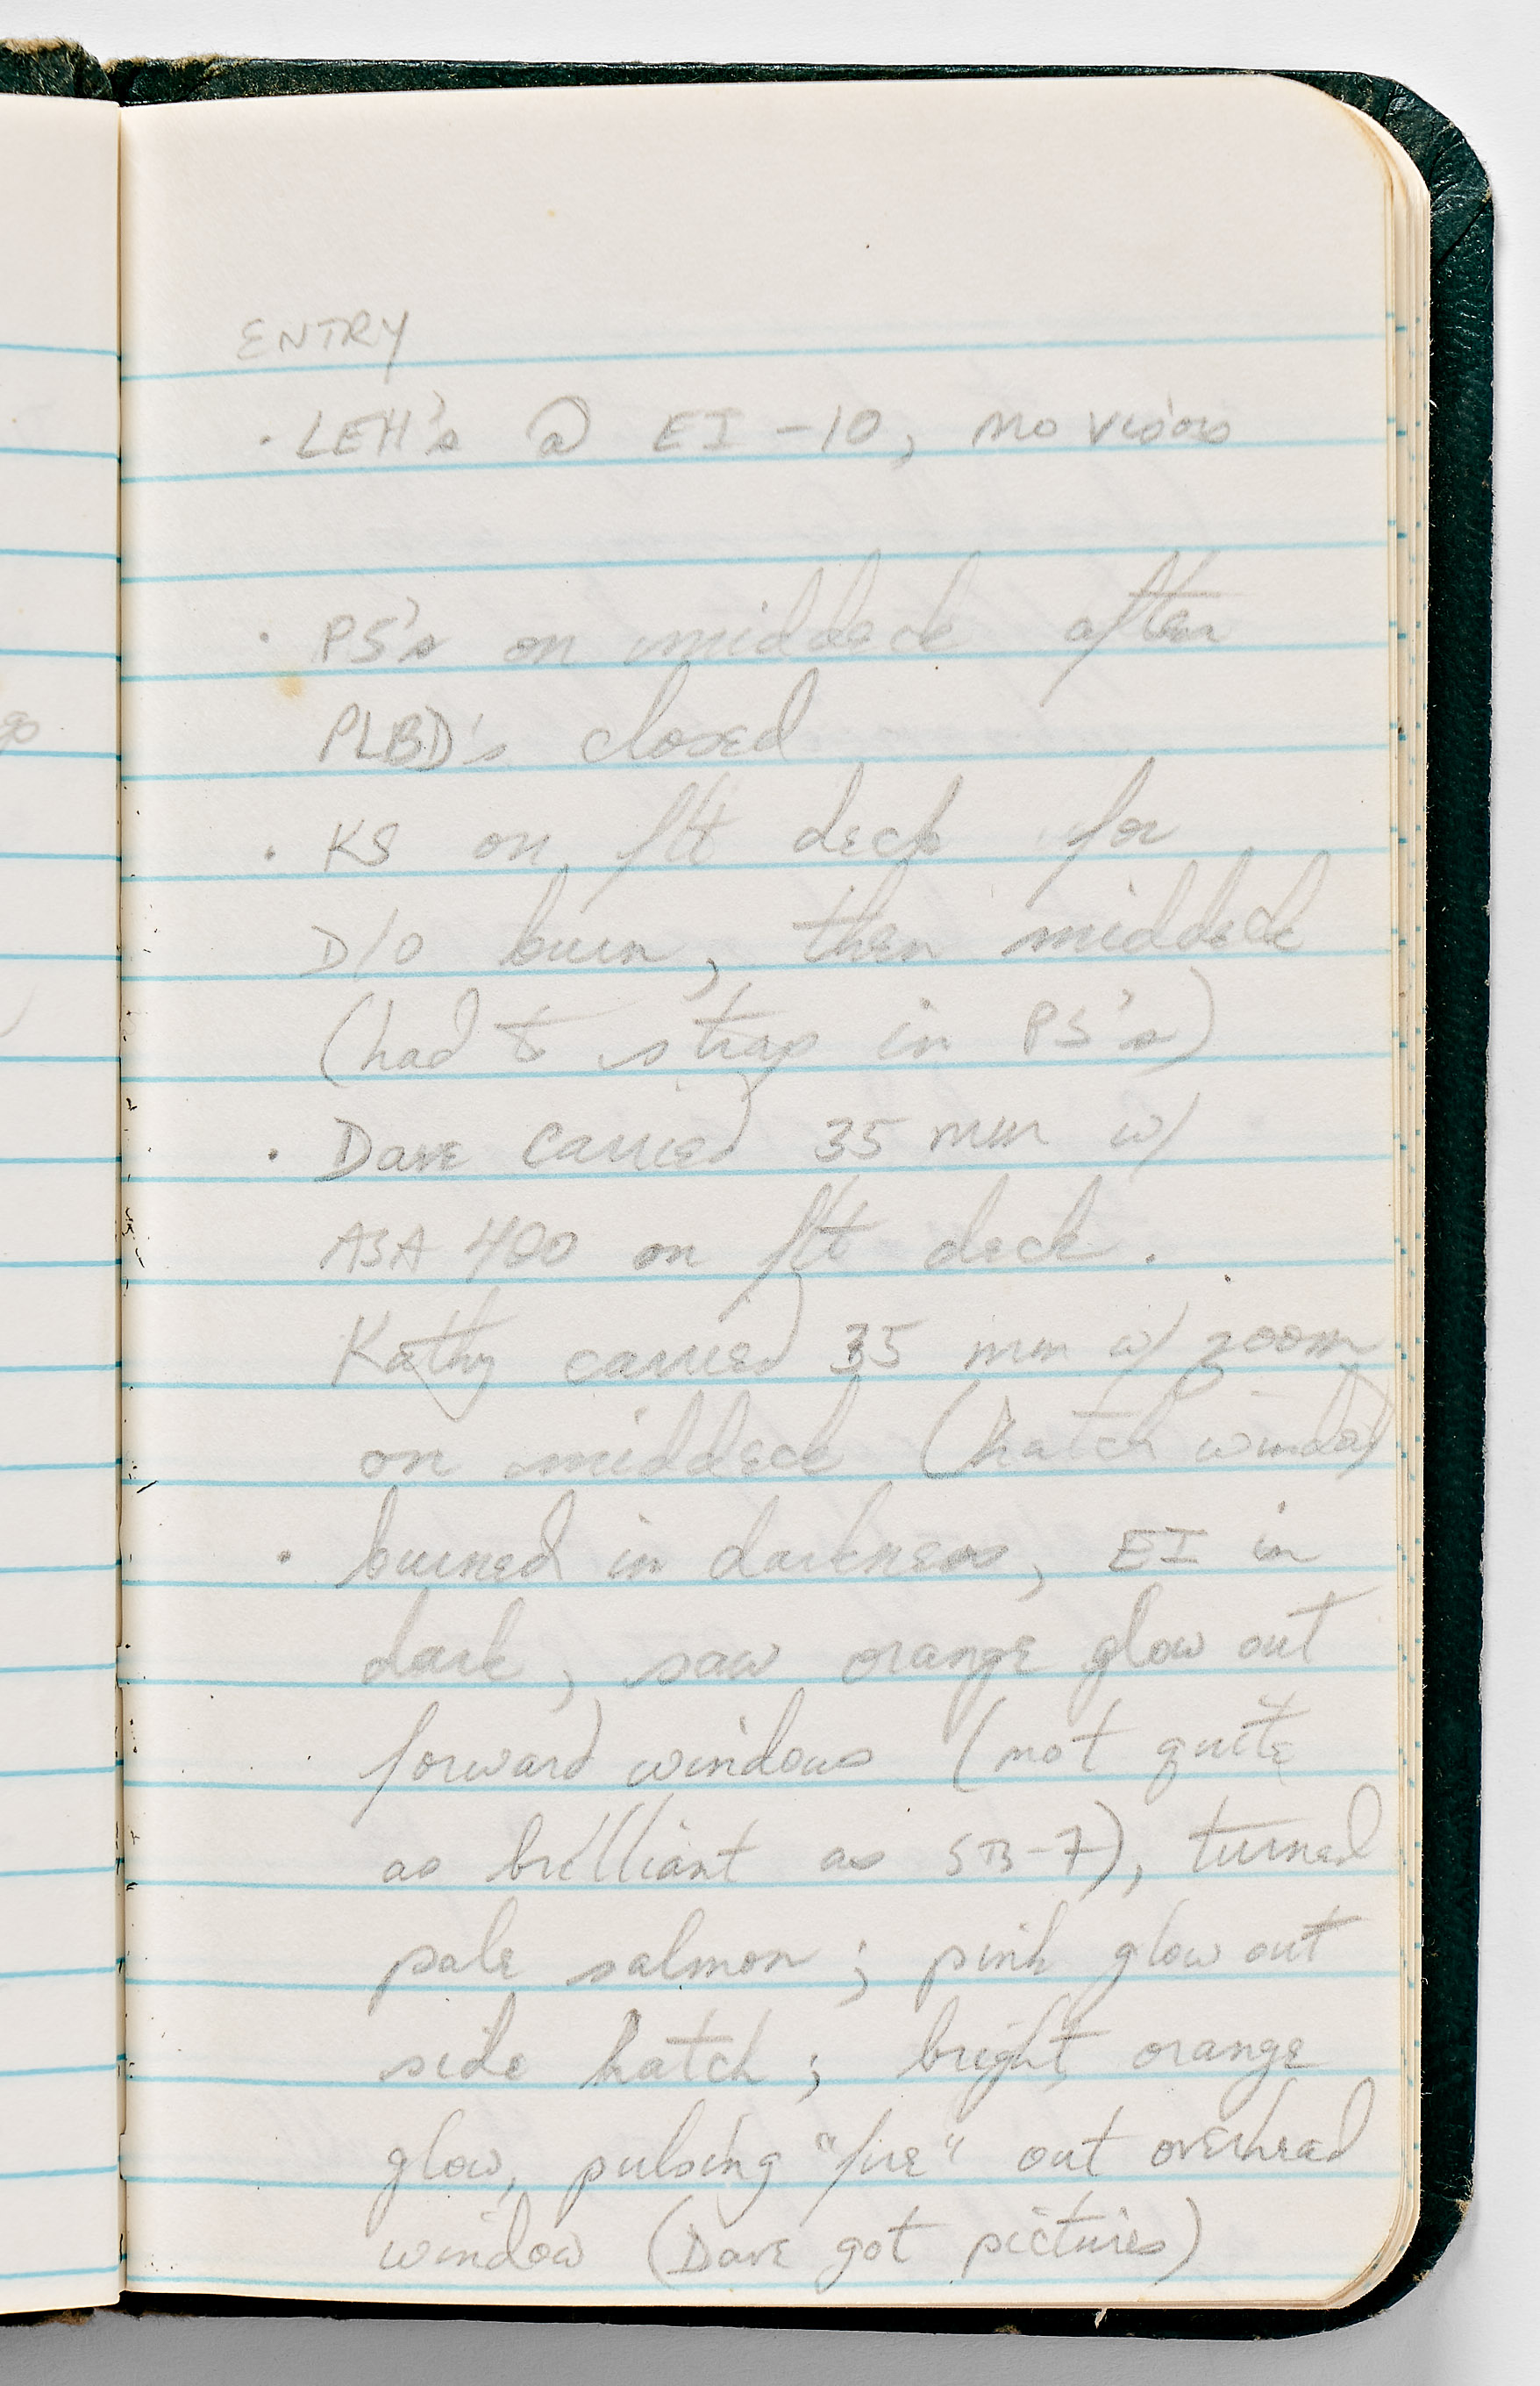 ENTRY
· LEH's @ EI -10, no visors
· PS's on middeck after
PLBD's closed
go
· KS on flt deck for
D/O burn, then middeck
(had to strap in PS's)
· Dave carried 35 mm w/
ASA 400 on flt deck.
Kathy carried 35 mm w/ zoom
on middeck (hatch window)
· burned in darkness, EI in
dark, saw orange glow out
forward windows (not quite
as brilliant as STS-7), turned
pale salmon; pink glow out
side hatch; bright orange
glow, pulsing "fire" out overhead
window (Dave got pictures)